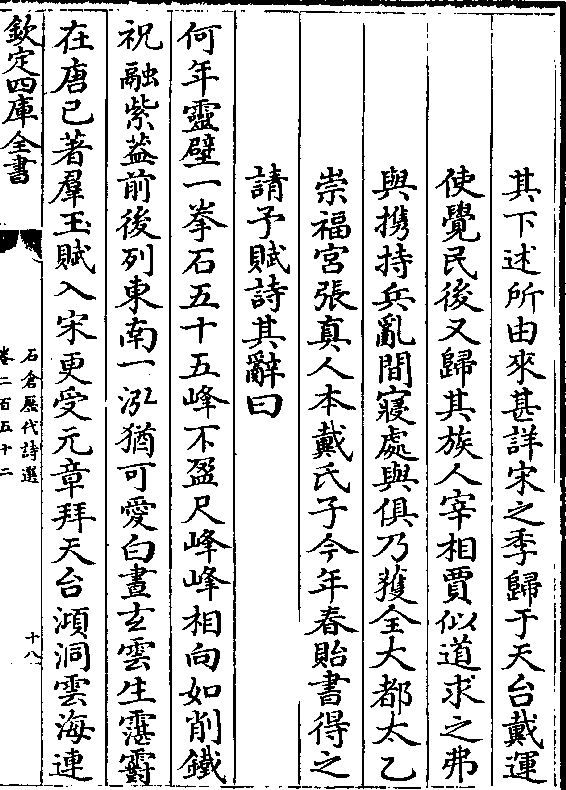 其下述所由來甚詳宋之季歸于天台戴運
使覺民後又歸其族人宰相賈似道求之弗
與携持兵亂間寢處與俱乃獲全大都太乙
崇福宮張真人本戴氏子今年春貽書得之
請予賦詩其辭曰
何年靈壁一拳石五十五峰不盈尺峰峰相向如削鐵
祝融紫葢前後列東南一泓猶可愛白晝玄雲生霮䨴
在唐已著羣玉賦入宋更受元章拜天台澒洞雲海連
欽定四庫全書
石倉歷代詩選
卷二百五十二
十八